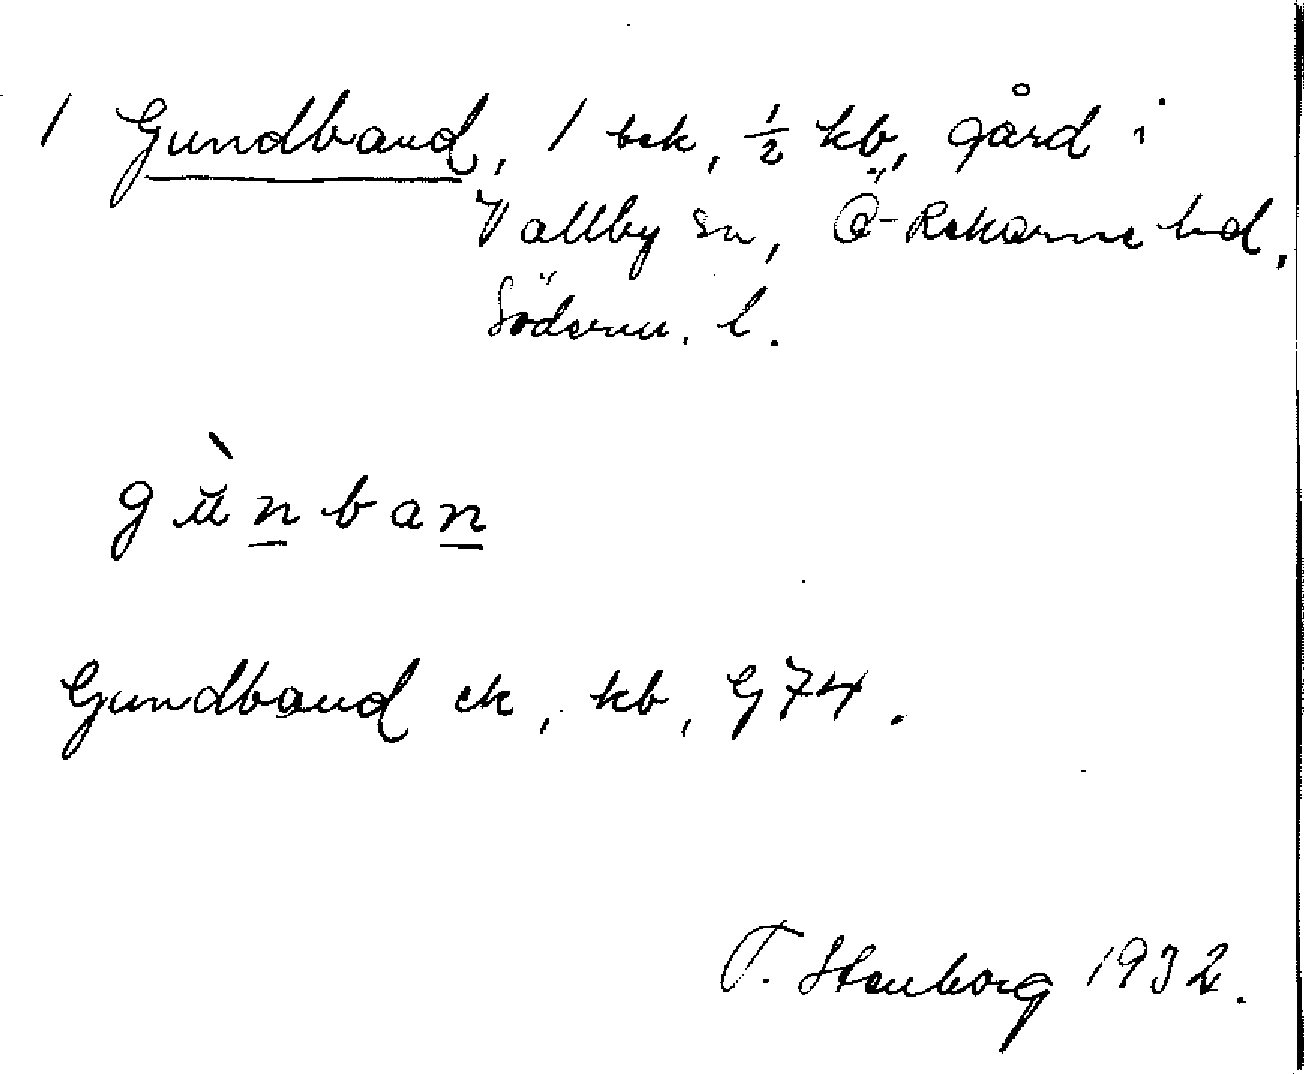 1 Gundband, 1 bek, ½ kb, gård i
Vallby sn, Ö-Rekarne hd,
Söderm. l.
gùnban
Gundband ek, kb, G74.
T. Stenborg 1932.